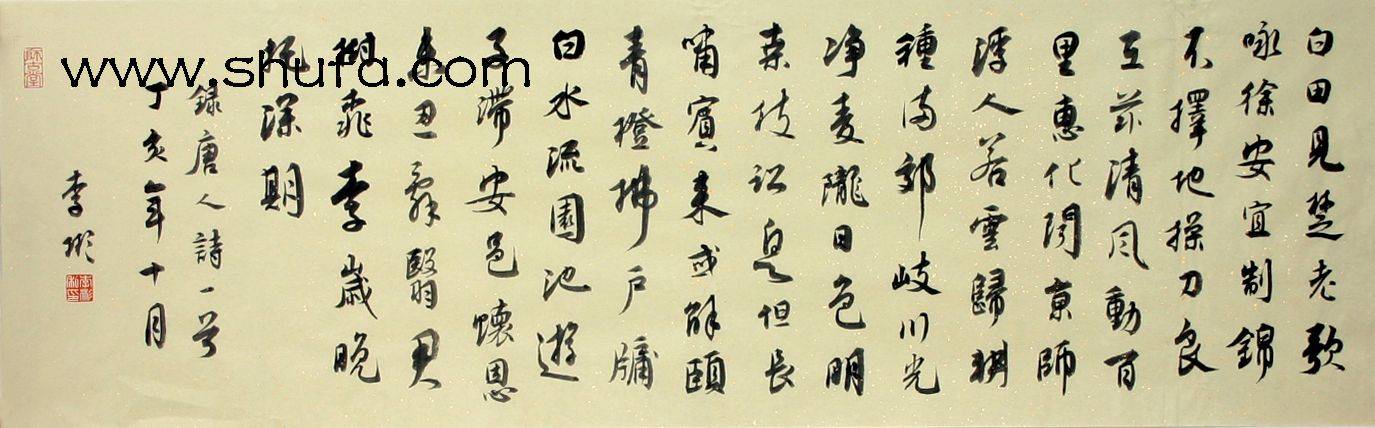 白田見楚老歌
咏徐安宜制錦
不擇地操刀良
在茲清風動百
里惠化聞京師
浮人若雲歸耕
種滿郊岐川光
净麦隴日色明
桑枝訟息但長
嘯賓來或解頤
青橙拂戶牖
白水流園池遊
子滯安邑懷恩
未忍辭翳君
樹桃李歲晚
托深期
錄唐人詩一首
丁亥年十月
李彬
www.shufa.com